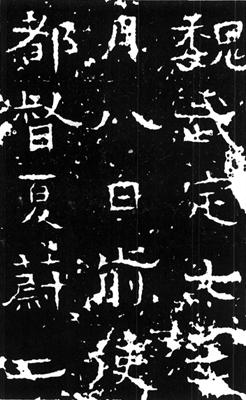 魏武定七年
月八日前使
都督夏蔚